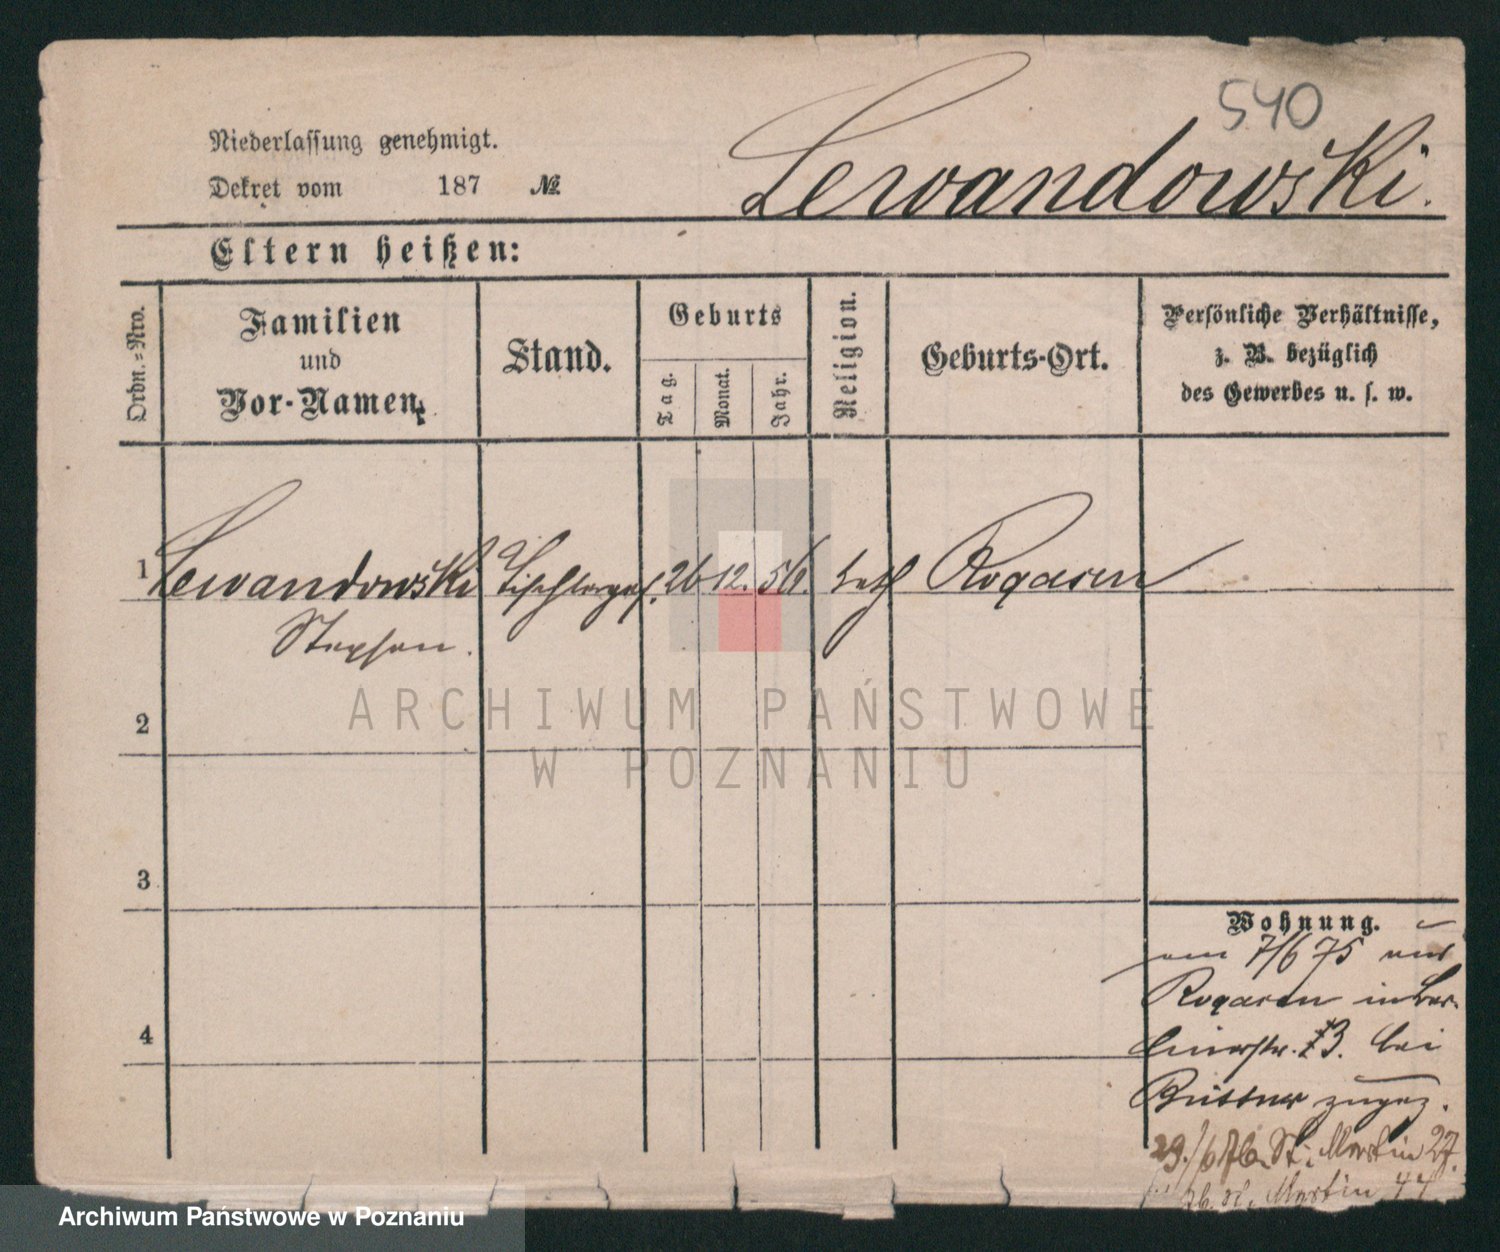 540
Niederlassung genehmigt.
Lewandowski.
Dekret vom 187 №
Eltern heißen:
Ordn.-Nro.
Familien
und
Vor-Namen.
Stand.
Geburts
Tag.
Monat.
Jahr.
Religion.
Geburts-Ort.
Persönliche Verhältnisse,
z. B. bezüglich
des Gewerbes u. s. w.
1 Lewandowski Tischlerges. 26 12. kath Rogasen
Stephan.
2
3
4
Wohnung.
am 7/6 75 aus
Rogasen in Ber-
linerstr. 13. bei
Büttner zugez.
29./6 76. St. Martin 27.
St. Martin 44
ARCHIWUM PAŃSTWOWE
W POZNANIU
Archiwum Państwowe w Poznaniu